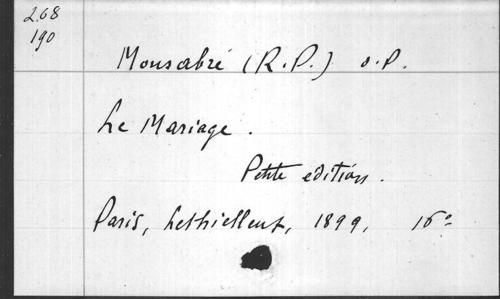 268
190
Monsabré (R.P.) o.P.
Le Mariage.
Petite edition.
Paris, Lethielleux, 1899, 16º